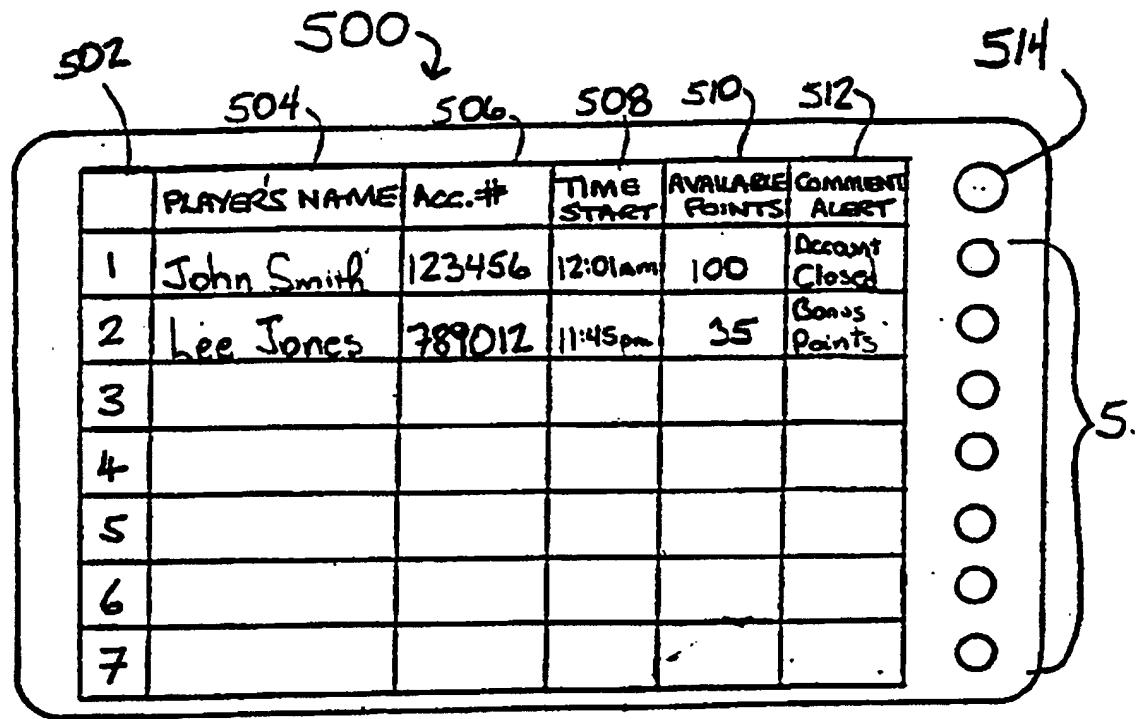 500
502
504
506
508
510
512
514
PLAYER'S NAME
ACC.#
TIME
START
AVAILABLE
POINTS
COMMENT
ALERT
1
John Smith
123456
12:01am
100
Account
Closed
2
Lee Jones
789012
11:45pm
35
Bonus
Points
3
4
5
6
7
5.